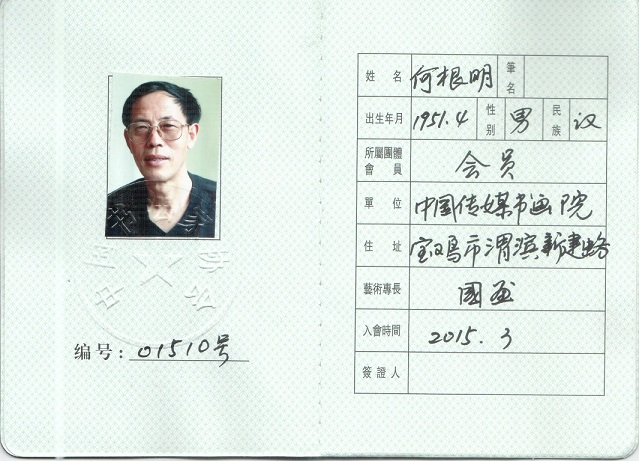 编号: 01510号
姓名 何根明 筆名
出生年月 1951.4 性别 男 民族 汉
所屬團體會員 会员
單位 中国传媒书画院
住址 宝鸡市渭滨新建路
藝術專長 國画
入會時間 2015.3
簽證人